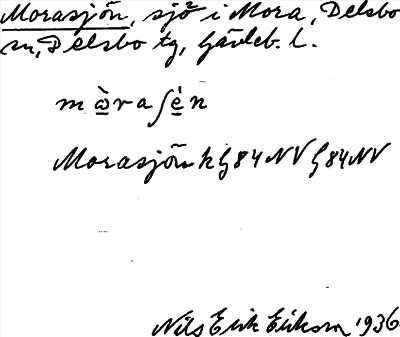 Morasjön, sjö i Mora, Delsbo
sn, Delsbo tg, Gävleb. l.
m ὰ̱ r a ʃ ὲ̱ n
Morasjön k G 84 NV G 84 NV
Nils Erik Erikson 1936